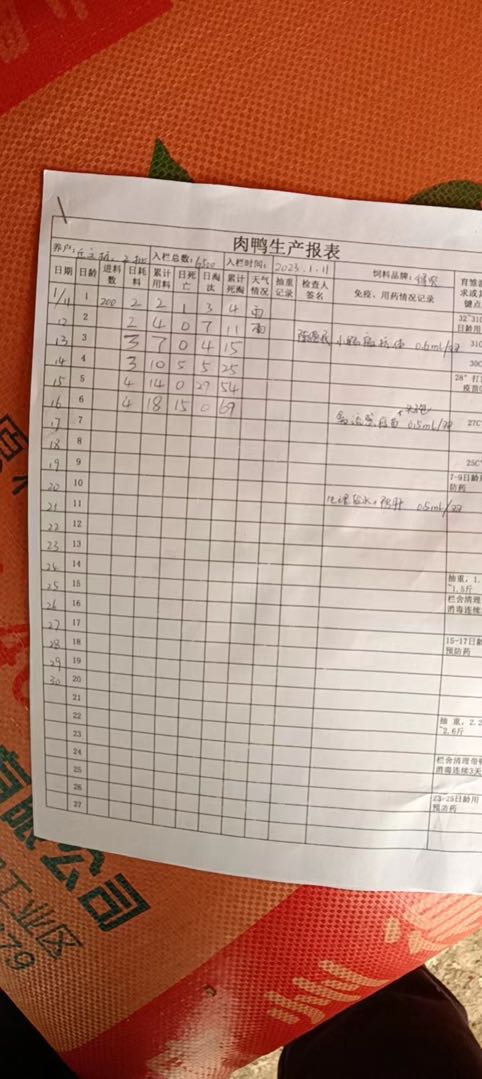 肉鸭生产报表
养户: 入栏总数:6500 入栏时间: 2023.1.11 饲料品牌:
日期 日龄 进料数 日耗料 累计用料 日死亡 日淘汰 累计死淘 天气情况 抽重记录 检查人签名 免疫、用药情况记录
1/11 1 200 2 2 1 3 4 雨 32~31
12 2 2 4 0 7 11 雨 日龄用
13 3 3 7 0 4 15 0.6ml/羽 31
14 4 3 10 5 5 25 30
15 5 4 14 0 29 54 28°
16 6 4 18 15 0 69 疫苗 0.5ml/羽 27C
17 7
18 8 25C
19 9 7-9日龄用
20 10 防药
21 11 0.5ml/羽
22 12
23 13
24 14
25 15 抽重,1.
~1.5斤
26 16 栏舍清理
消毒连续
27 17
28 18 15-17日龄
预防药
29 19
30 20
21
22 抽重,2.2
~2.6斤
23
24 栏舍清理带
25 消毒连续3天
26
27 23-25日龄用
预防药
有限公司
工业区
79